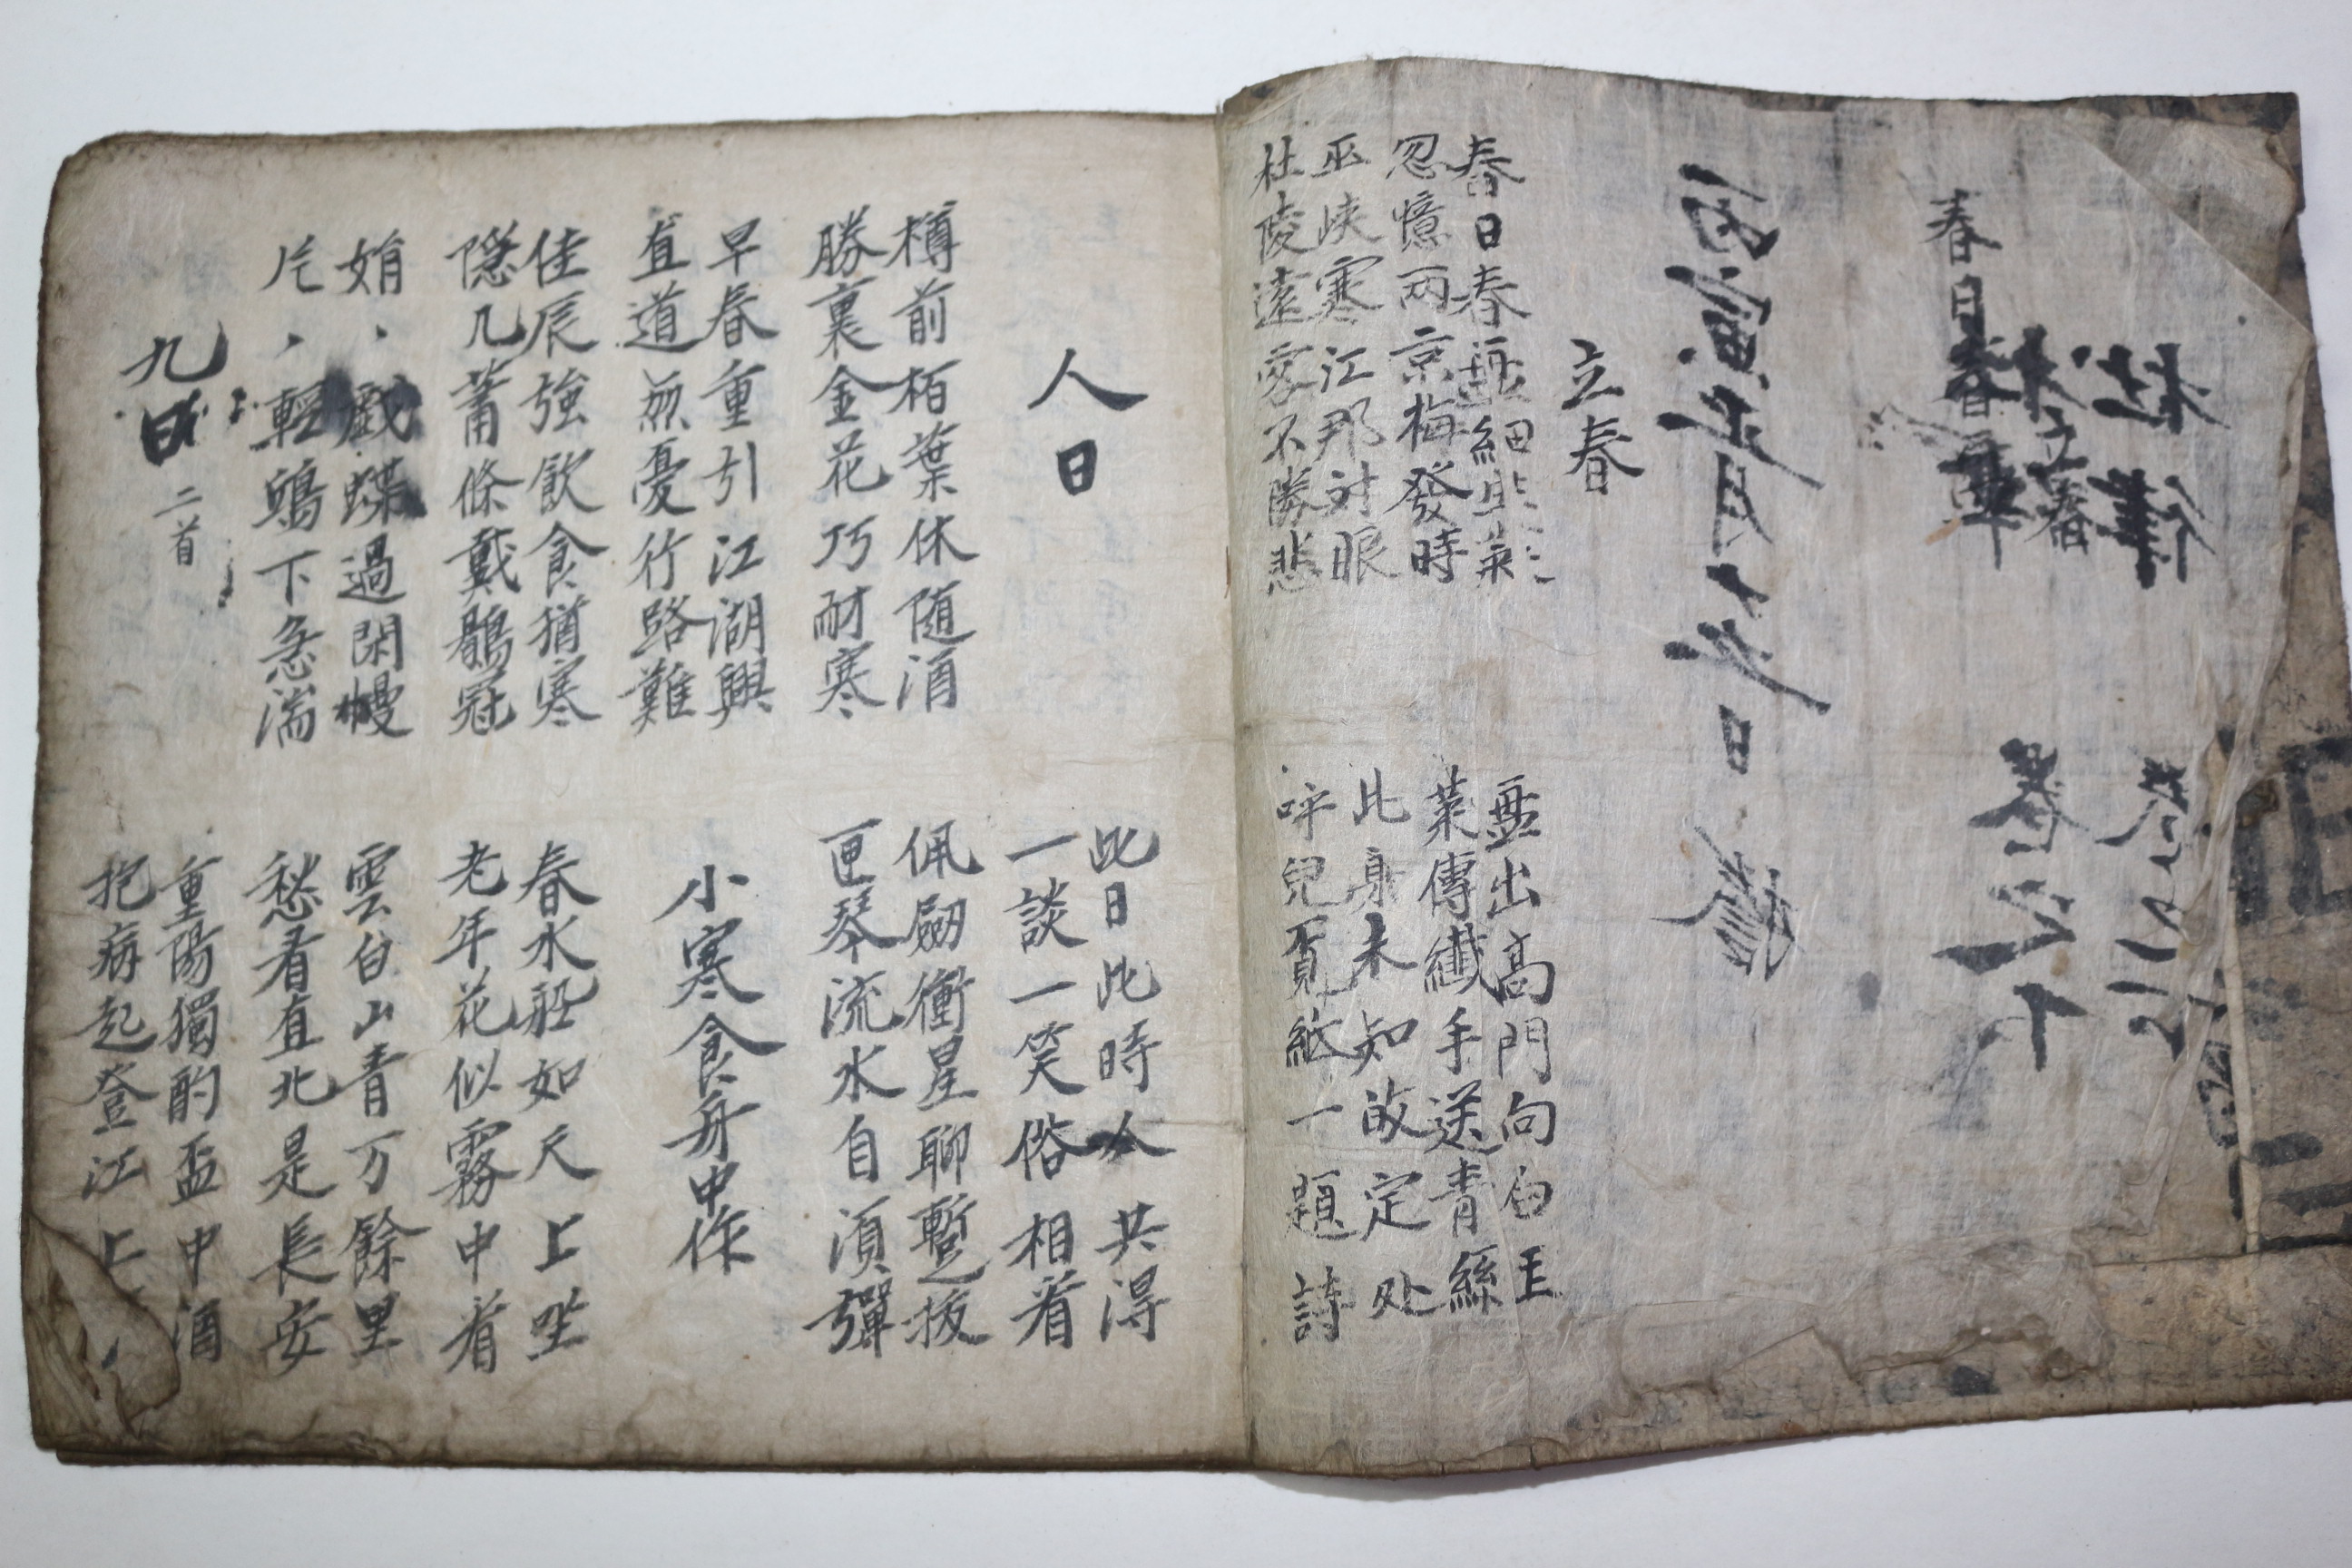 杜律
春日
立春
丙寅年月
立春
春日春盤細生菜
忽憶兩京梅發時
盤出高門句白玉
菜傳纖手送青絲
巫峽寒江那対眼
杜陵遠客不勝悲
此身未知故定处
呼兒覓紙一題詩
人日
此日此時人共得
一談一笑俗相看
樽前栢葉休随酒
勝裏金花巧耐寒
佩劒衝星聊蹔拔
匣琴流水自湏彈
早春重引江湖興
直道無憂行路難
小寒食舟中作
佳辰強飲食猶寒
隱几蕭條戴鶡冠
春水船如天上坐
老年花似霧中看
娟、戲蝶過閑幔
片、輕鷗下急湍
雲白山青万餘里
愁看直北是長安
九日 二首
重陽獨酌盃中酒
抱病起登江上